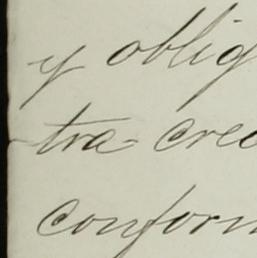 y oblig
tra= crec
conform